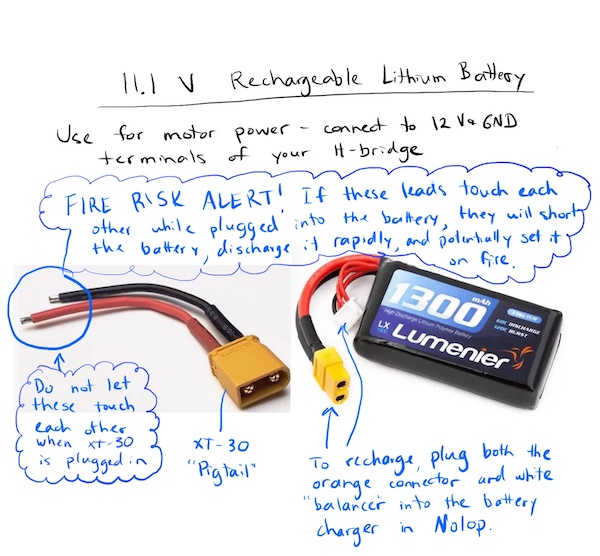 11.1 V Rechargeable Lithium Battery
Use for motor power - connect to 12 V & GND
terminals of your H-bridge
FIRE RISK ALERT! If these leads touch each
other while plugged into the battery, they will short
the battery, discharge it rapidly, and potentially set it
on fire.
1300 mAh
High Discharge Lithium Polymer Battery
60C DISCHARGE
120C BURST
LX
Lumenier
Do not let
these touch
each other
when XT-30
is plugged in
XT-30
"Pigtail"
To recharge, plug both the
orange connector and white
"balancer" into the battery
charger in Nolop.